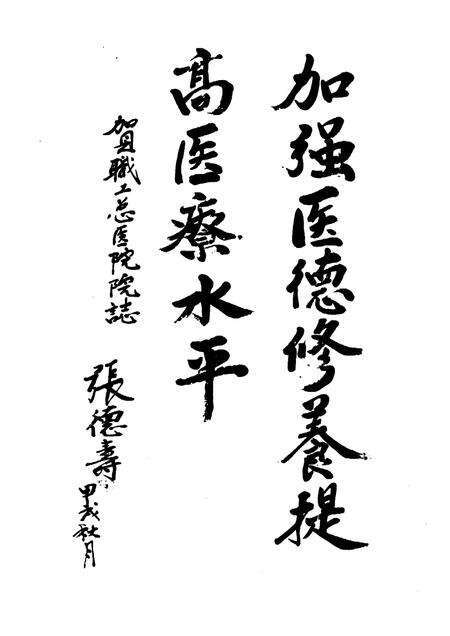 加强医德修養提
高医療水平
賀職工总医院院誌
張德壽
甲戌秋月